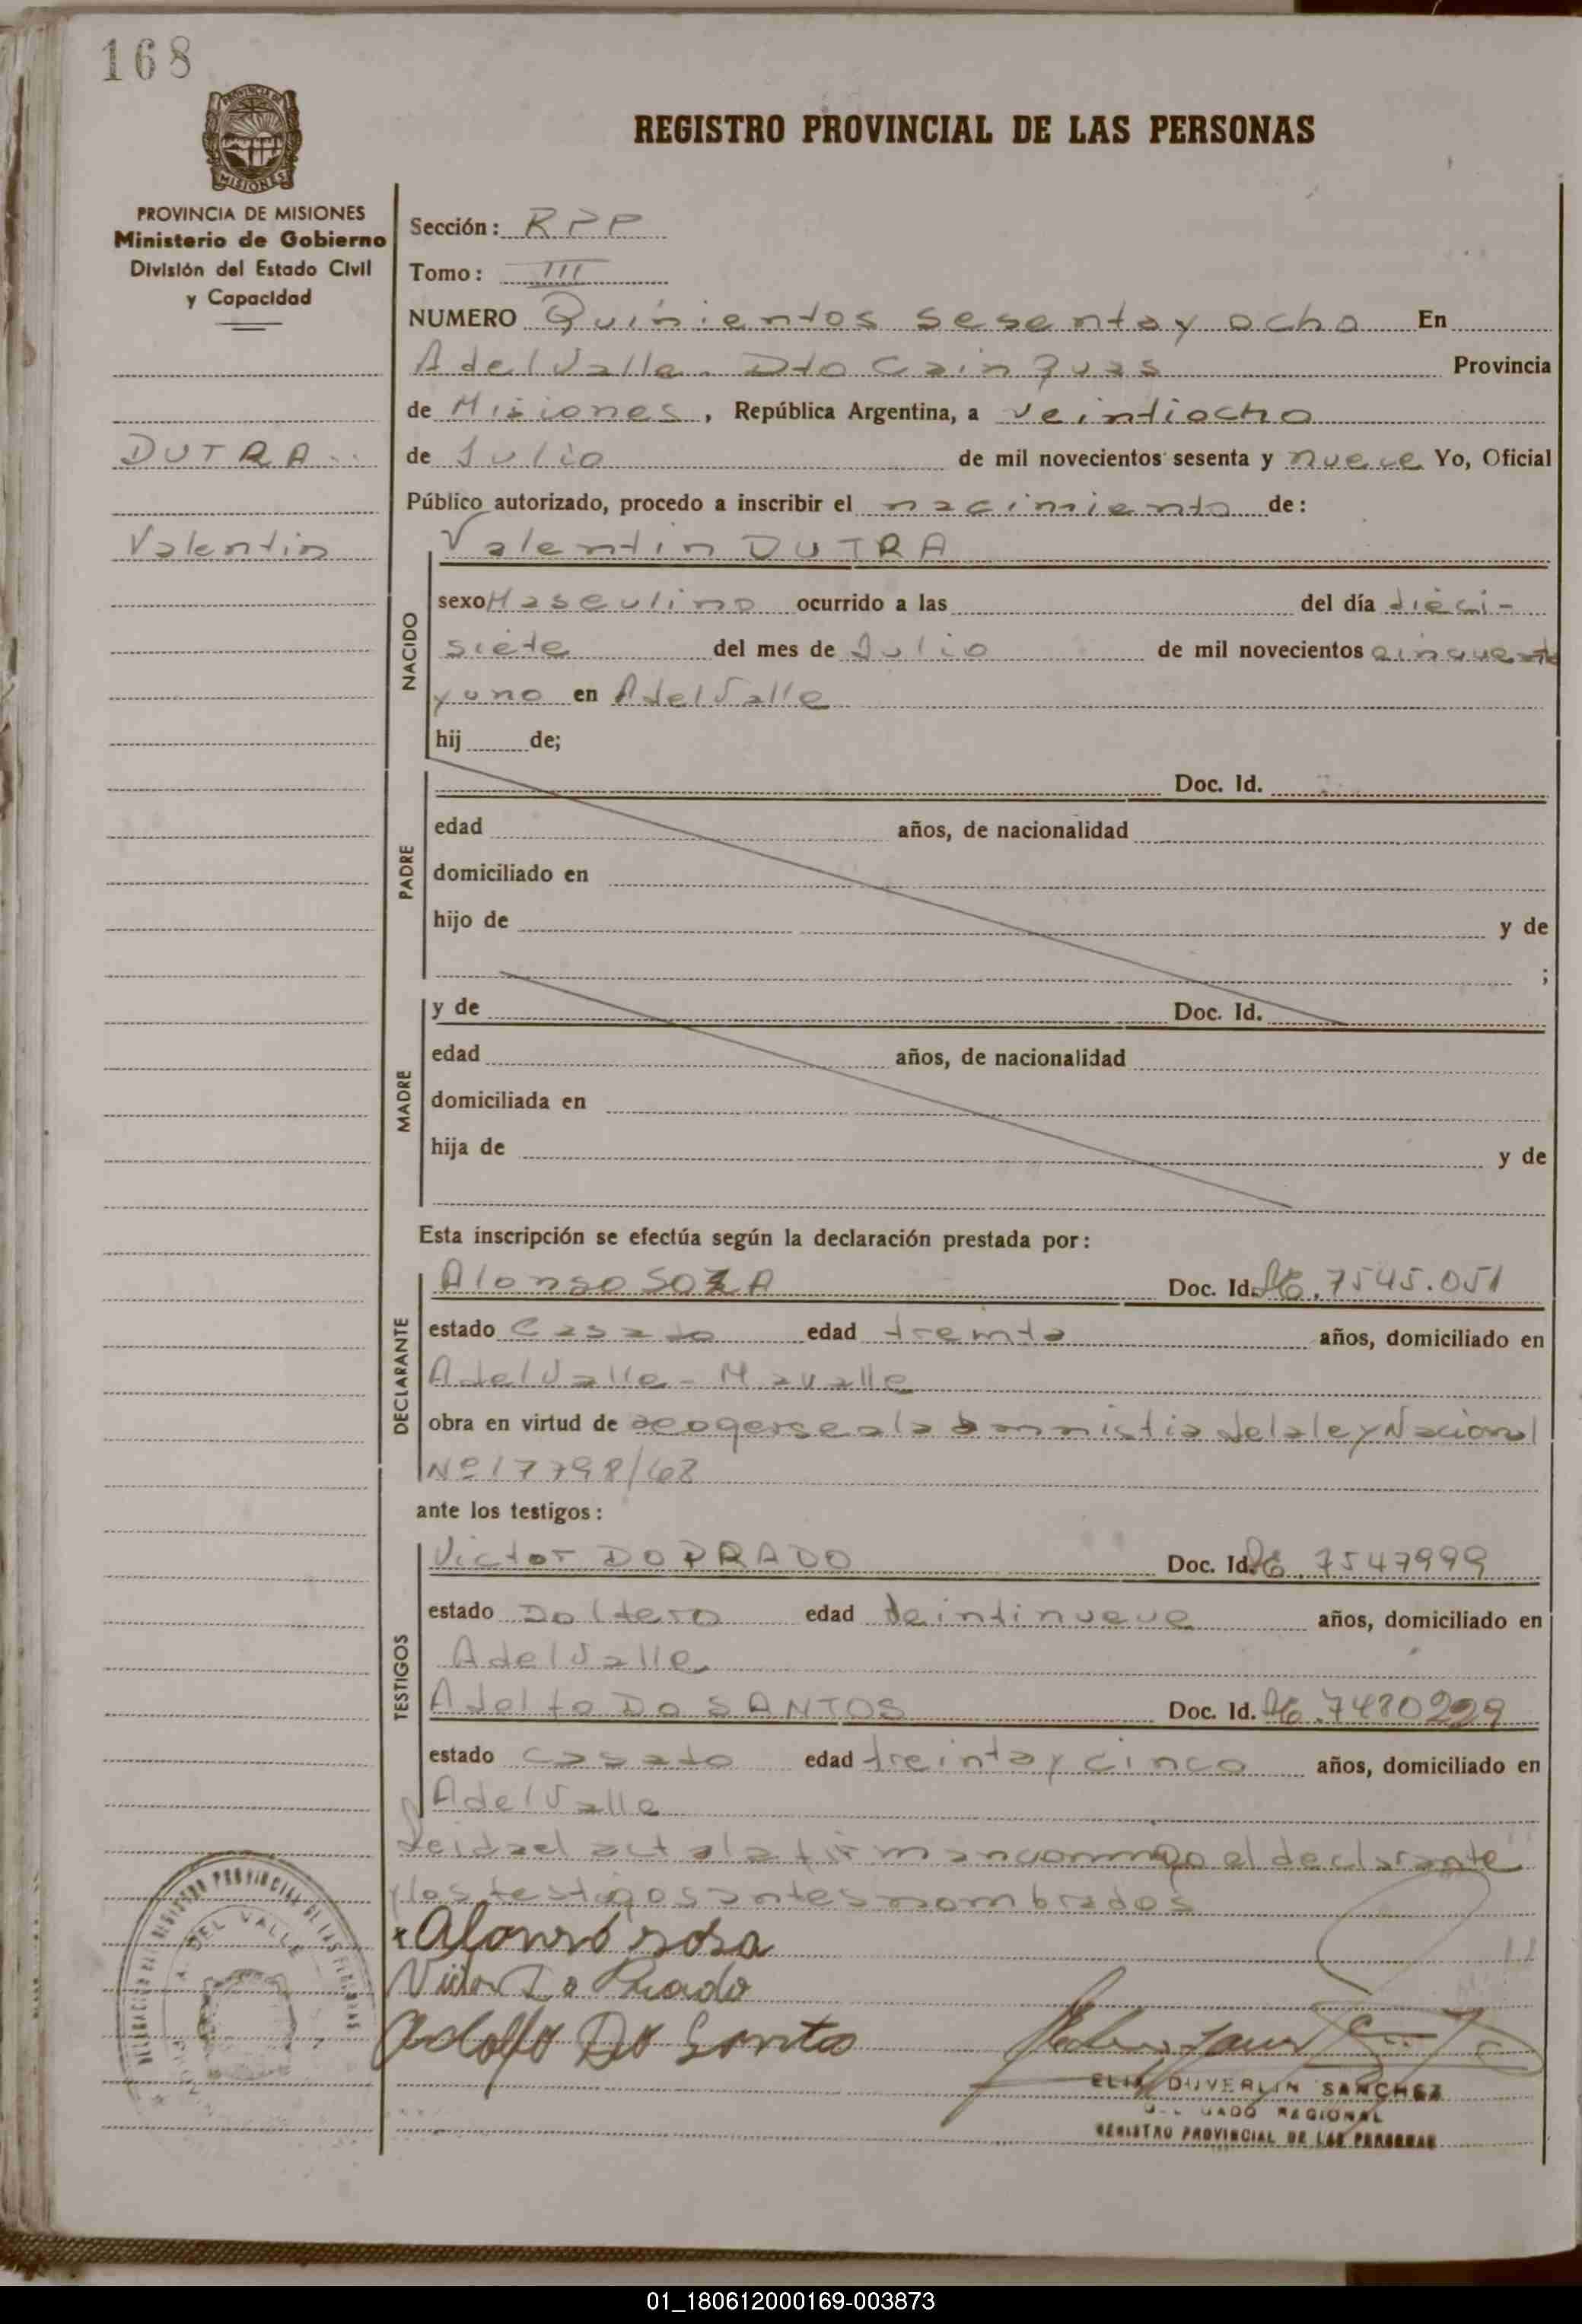 168
PROVINCIA DE MISIONES
REGISTRO PROVINCIAL DE LAS PERSONAS
PROVINCIA DE MISIONES
Ministerio de Gobierno
División del Estado Civil
y Capacidad
Sección: RPP
Tomo: III
NUMERO Quinientos sesenta y ocho En
A del Valle. Dto Cainguas Provincia
de Misiones, República Argentina, a veintiocho
DUTRA
de Julio de mil novecientos sesenta y nueve Yo, Oficial
Público autorizado, procedo a inscribir el nacimiento de:
Valentin
Valentin DUTRA
NACIDO
sexo Masculino ocurrido a las del día dieci-
siete del mes de Julio de mil novecientos cincuenta
y uno en A del Valle
hij de;
PADRE
Doc. Id.
edad años, de nacionalidad
domiciliado en
hijo de y de
;
MADRE
y de Doc. Id.
edad años, de nacionalidad
domiciliada en
hija de y de
Esta inscripción se efectúa según la declaración prestada por:
DECLARANTE
Alonso Doc. Id. 7545.051
estado Casado edad treinta años, domiciliado en
A del Valle - Mavalle
obra en virtud de acogerse a la amnistia de la ley Nacional
Nº 17798/68
ante los testigos:
TESTIGOS
Victor DO PRADO Doc. Id. 7547999
estado Soltero edad veintinueve años, domiciliado en
A del Valle
Adolfo Do SANTOS Doc. Id. 7480229
estado Casado edad treinta y cinco años, domiciliado en
A del Valle
Leida el acta la firman conmigo el declarante
y los testigos antes nombrados
Alonso rosa
Victor Do Prado
Adolfo Do Santos
DELEGACION DEL REGISTRO PROVINCIAL DE LAS PERSONAS
A. DEL VALLE
DUVERLIN SANCHEZ
REGIONAL
REGISTRO PROVINCIAL DE LAS PERSONAS
01_180612000169-003873